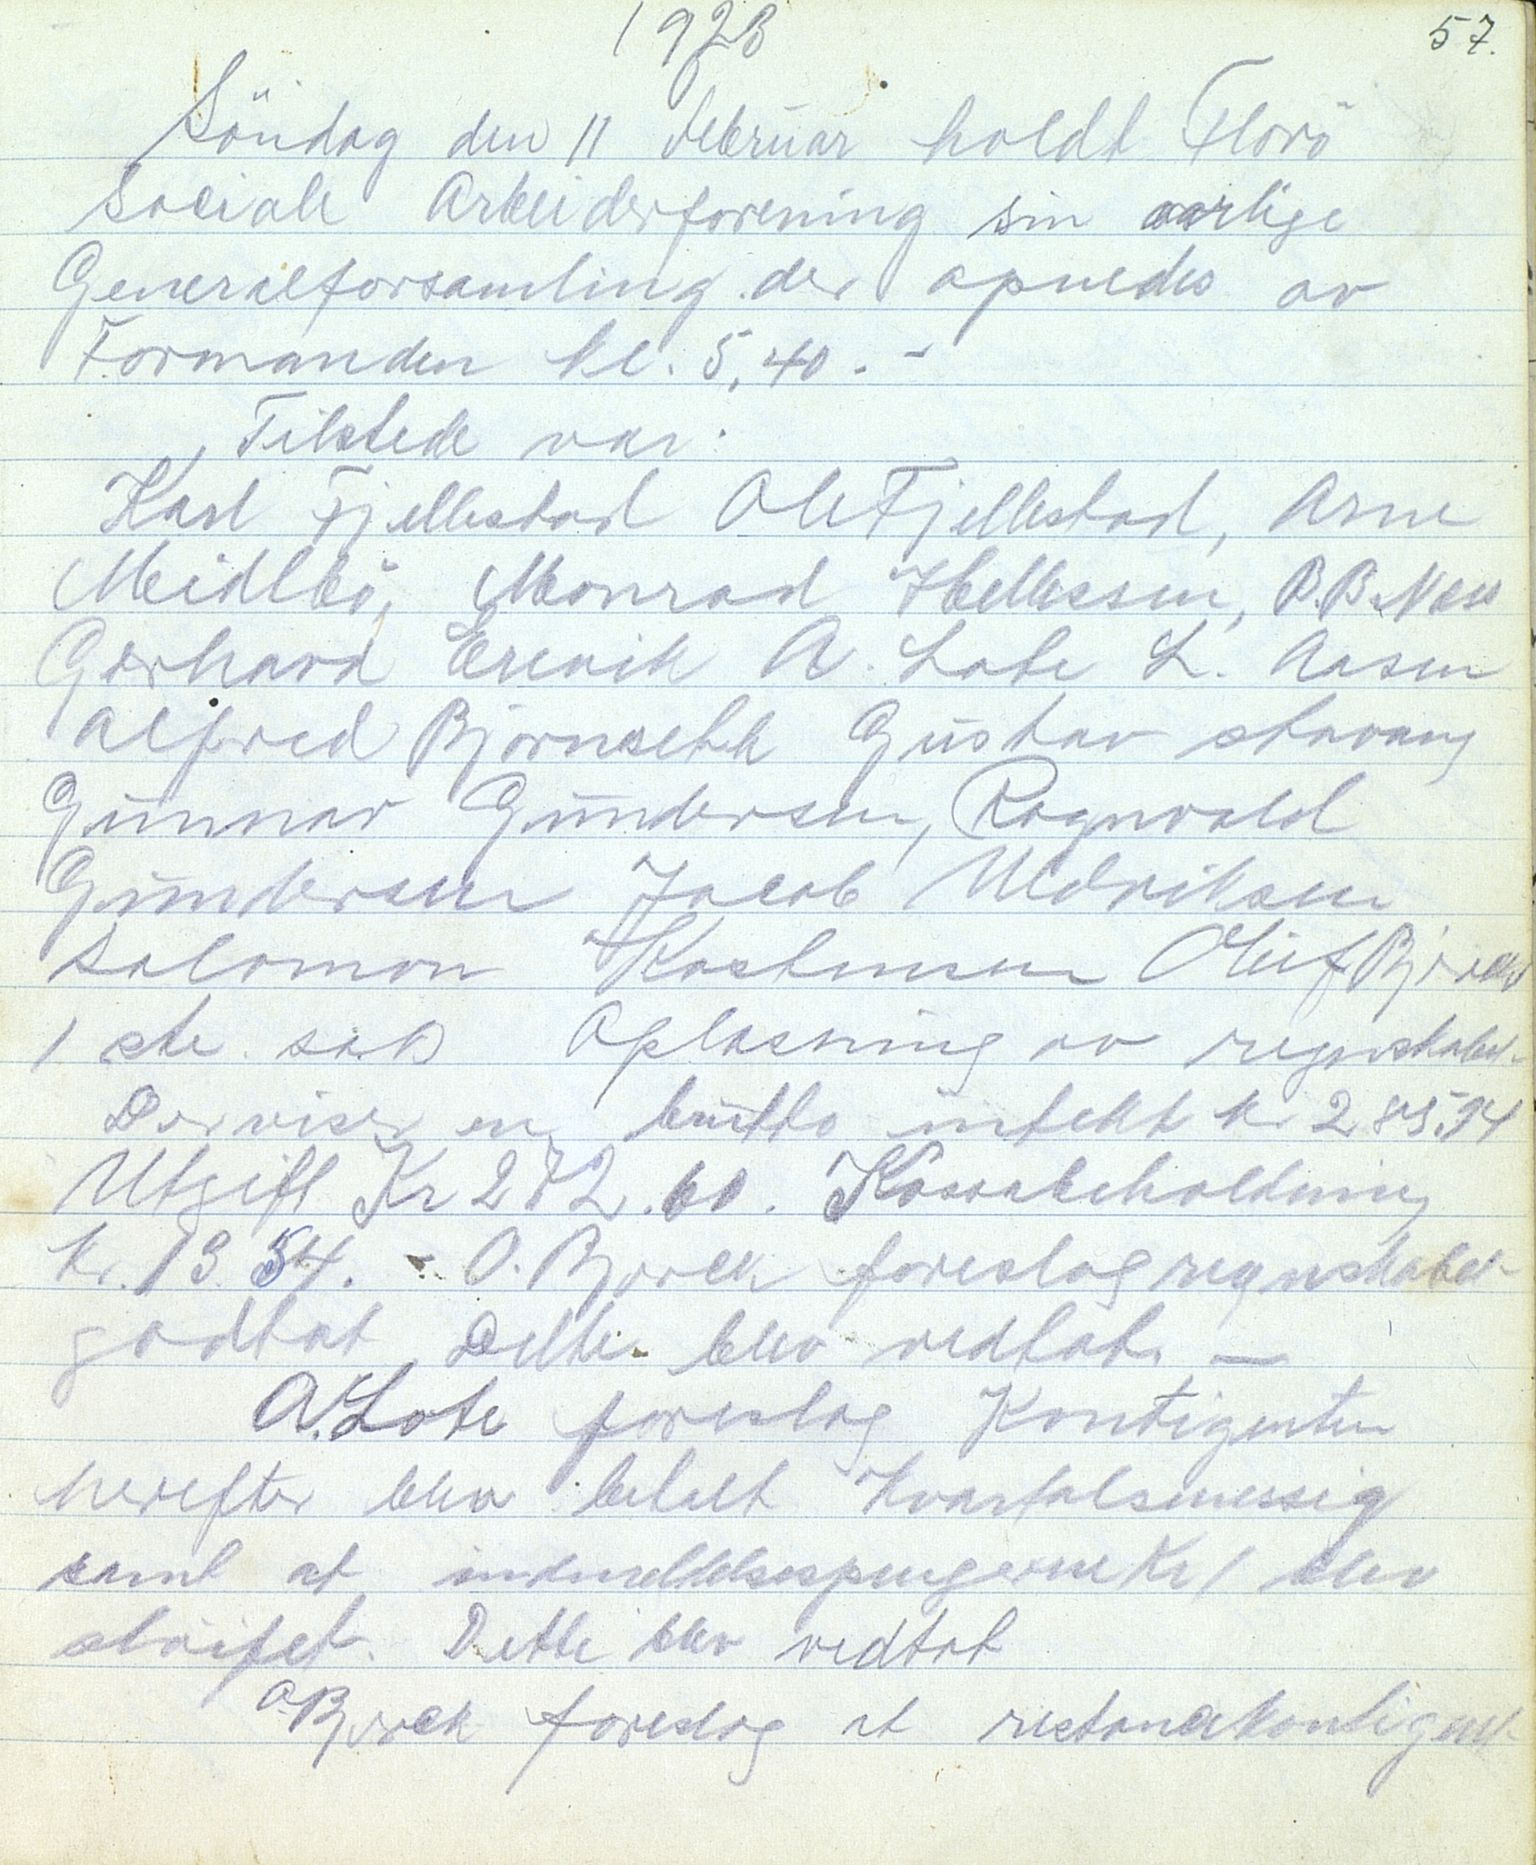 1923
57.
Söndag den 11 februar holdt Florö
Sociale Arbeiderforening sin aarlige
Generalforsamling der apnedes av
Formanden kl. 5,40. -
Tilstede var:
Karl Fjellestad Ole Fjellestad, Arne
Meidlbö, Monrad Hellessen, B.B. Næss
Gerhard A. Lote L. Aasen
Alfred Björnsett Gustav stavang
Gunnar Gundersen, Ragnvald
Gundersen Jacob Uldriksen
Salomon Olüf Bjoreck
1 ste sak Oplæsning av regnskabet-
Der viser en brutto intekt kr 285.94
Utgift Kr 272.60. Kassabeholdning
Kr. 13 54. - O. Bjoreck foreslog regnskabet-
godtat Dette blev vedtat. -
A. Lote foreslog Kontigenten
herefter blev betalt Kvartalsmessig
samt at indmeldelsespengerne Kr 1 blev
ströifet. Dette blev vedtat
O Bjoreck foreslog at restancekontigent-